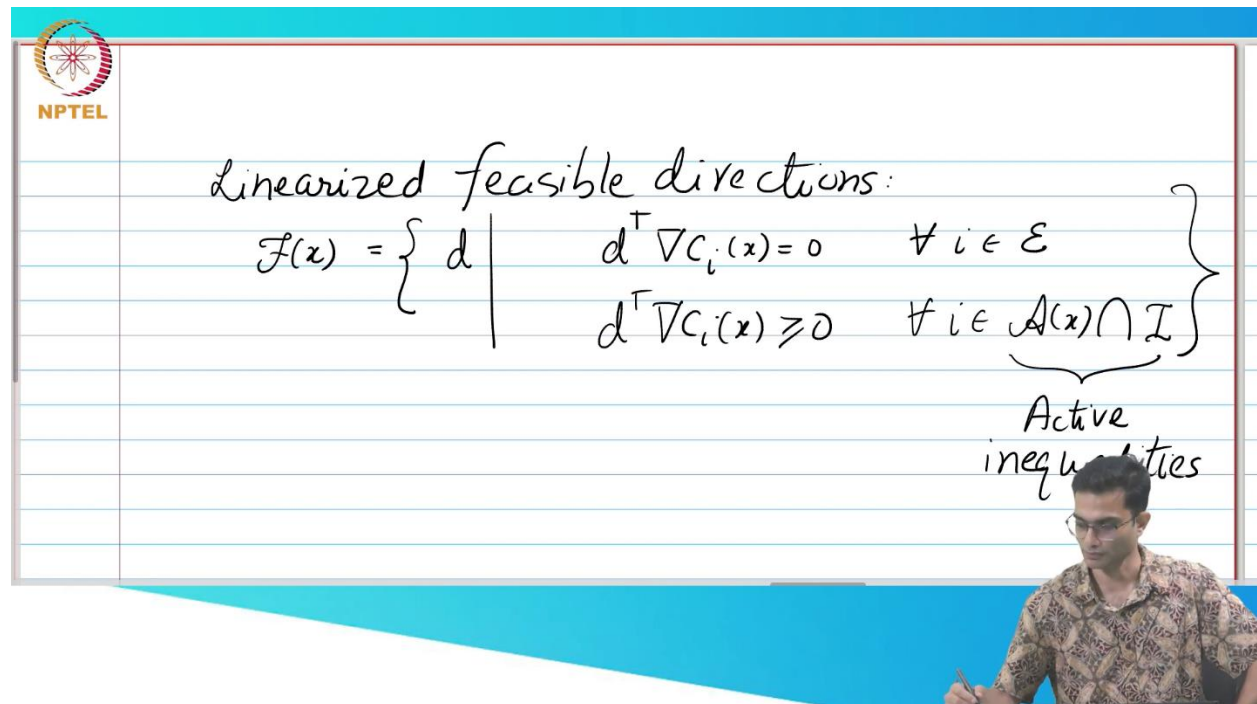 NPTEL
Linearized feasible directions:
F(x) = { d | dᵀ∇Cᵢ(x) = 0 ∀ i ∈ Ɛ
dᵀ∇Cᵢ(x) ⩾ 0 ∀ i ∈ A(x) ⋂ I }
Active